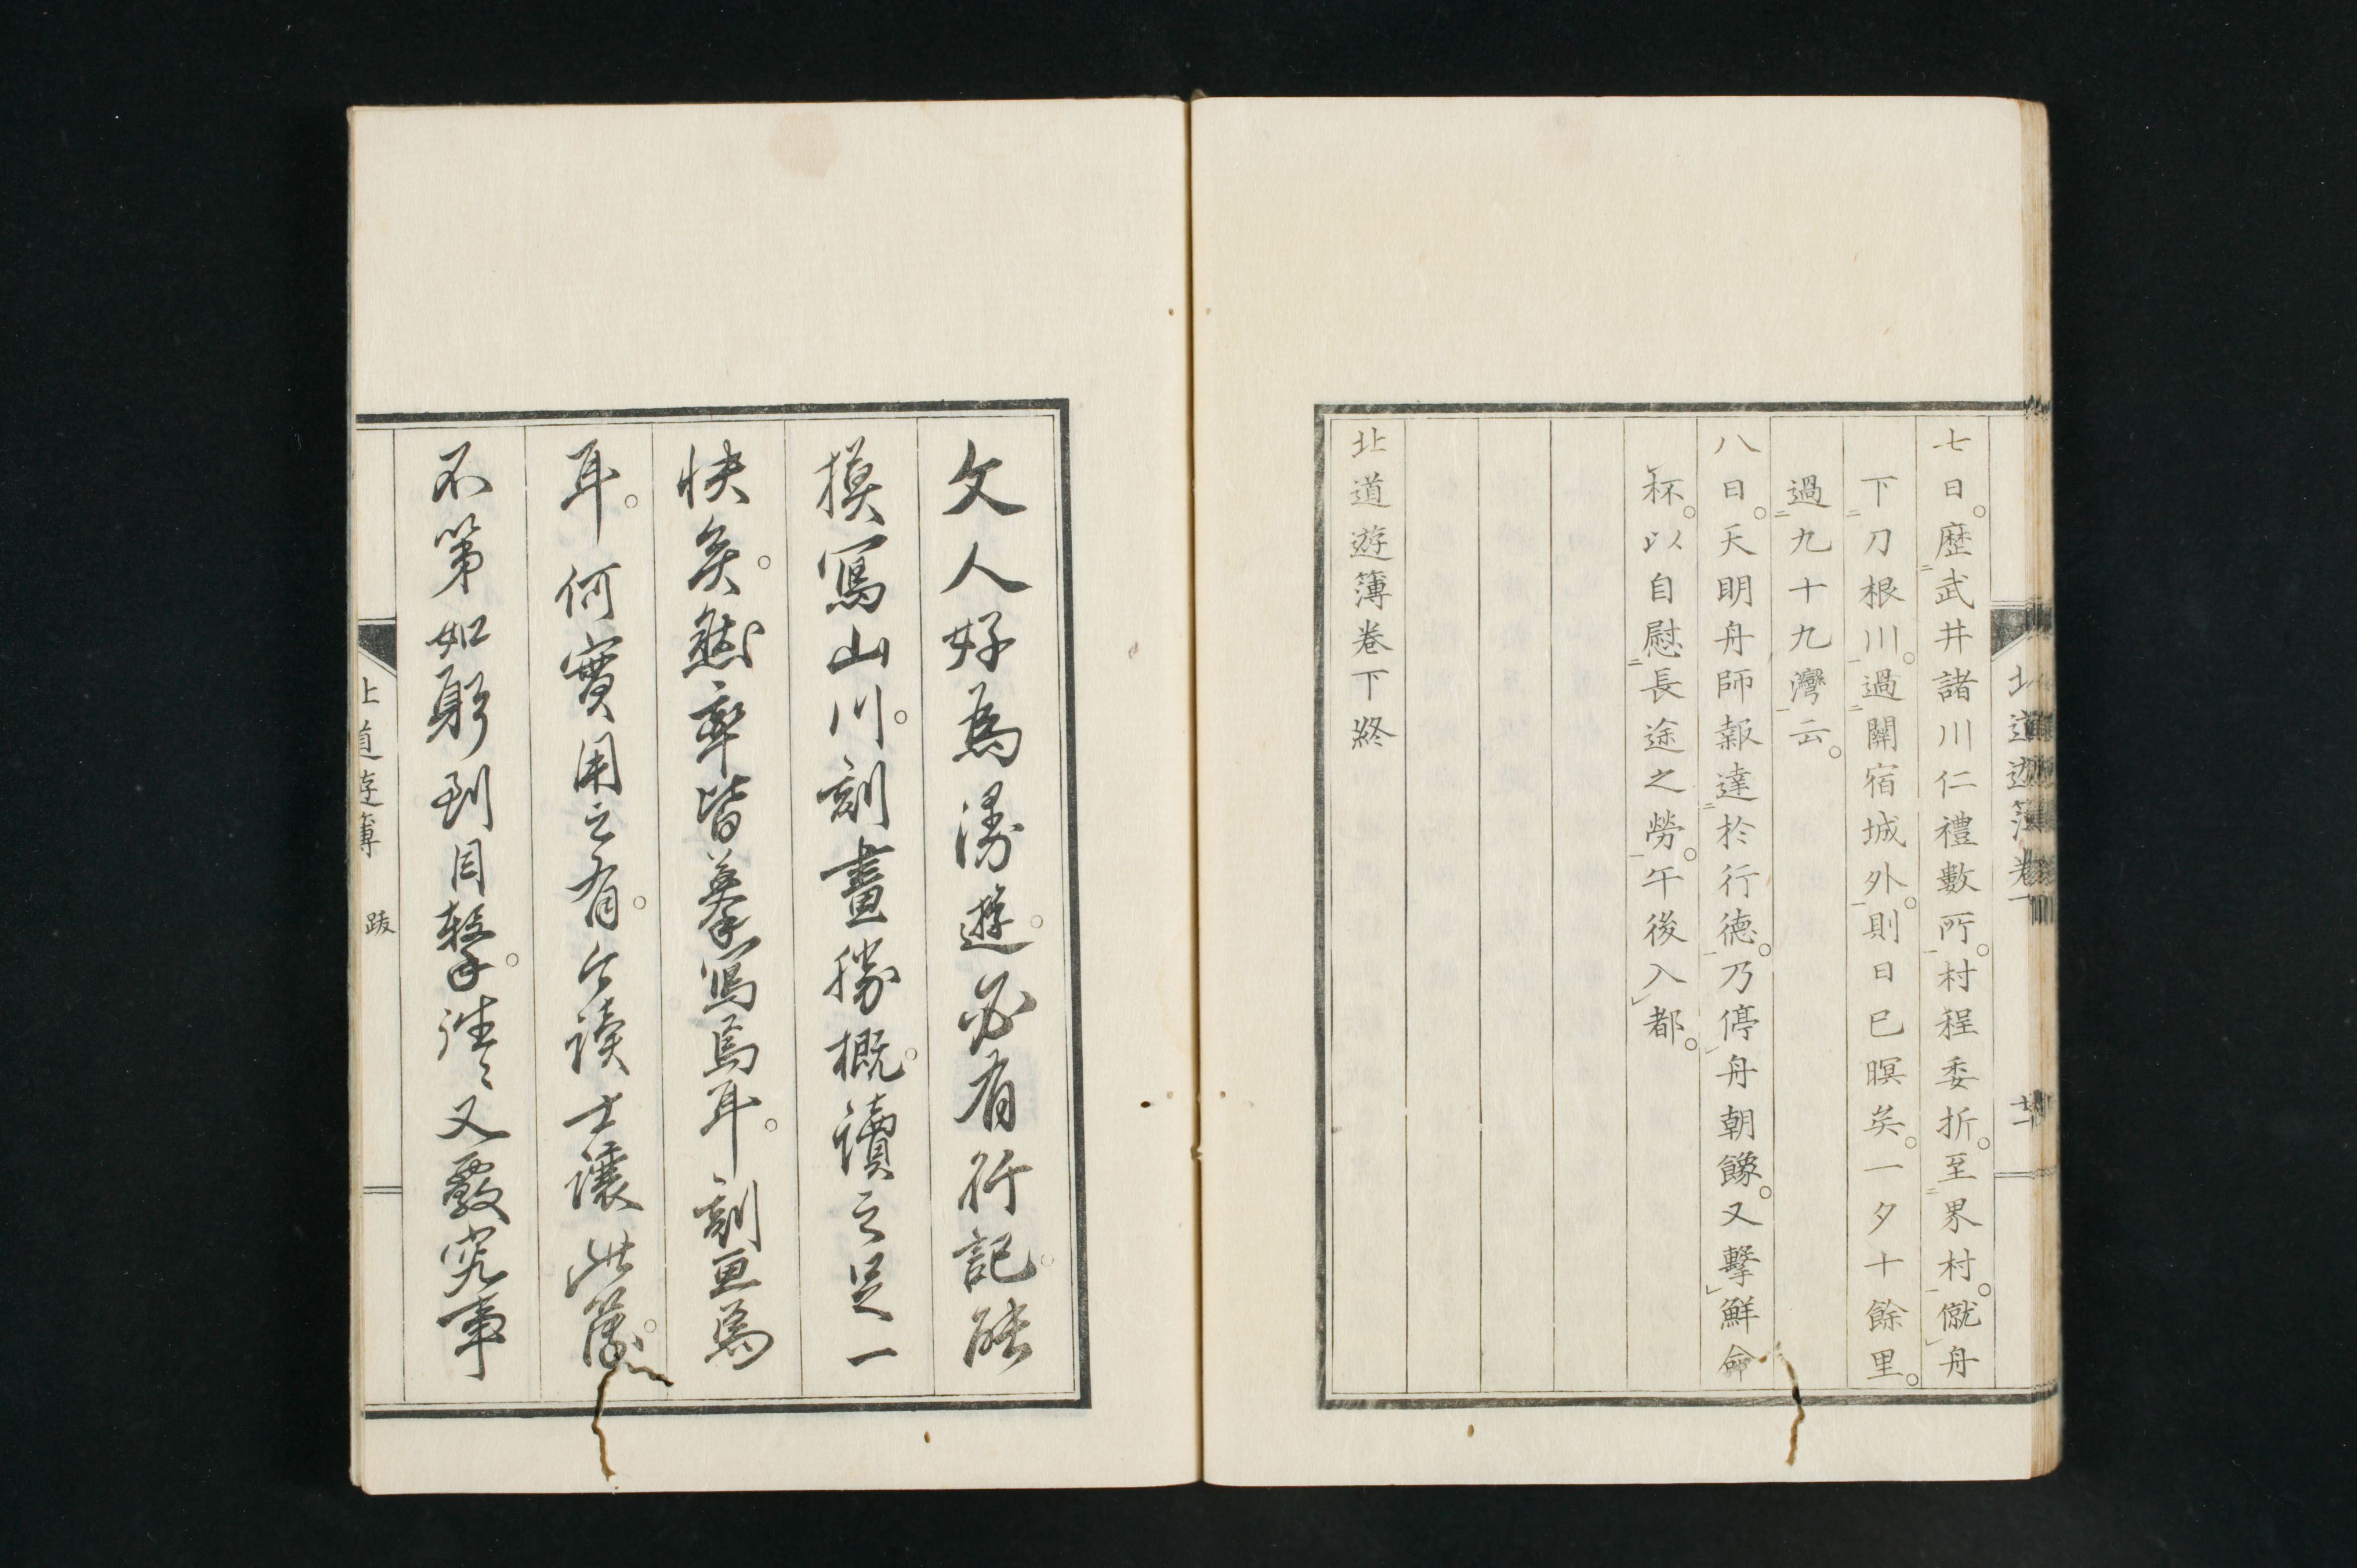 七日。歴武井諸川仁禮數所。村程委折。至界村。僦舟
下刀根川。過關宿城外。則日已暝矣。一夕十餘里。
過九十九灣云。
八日。天明舟師報達於行德。乃停舟朝餘。又擊鮮命
杯。以自慰長途之勞。午後入都。
北道遊簿卷下終
文人好為漫遊。必有行記。能
摸寫山川。刻畫勝概。讀之足一
快矣。然率皆摹寫焉耳。刻画焉
耳。何實用之有。今讀士讓此簿。
不第如躬到目擊。往々又覈究事
北道遊簿 跋